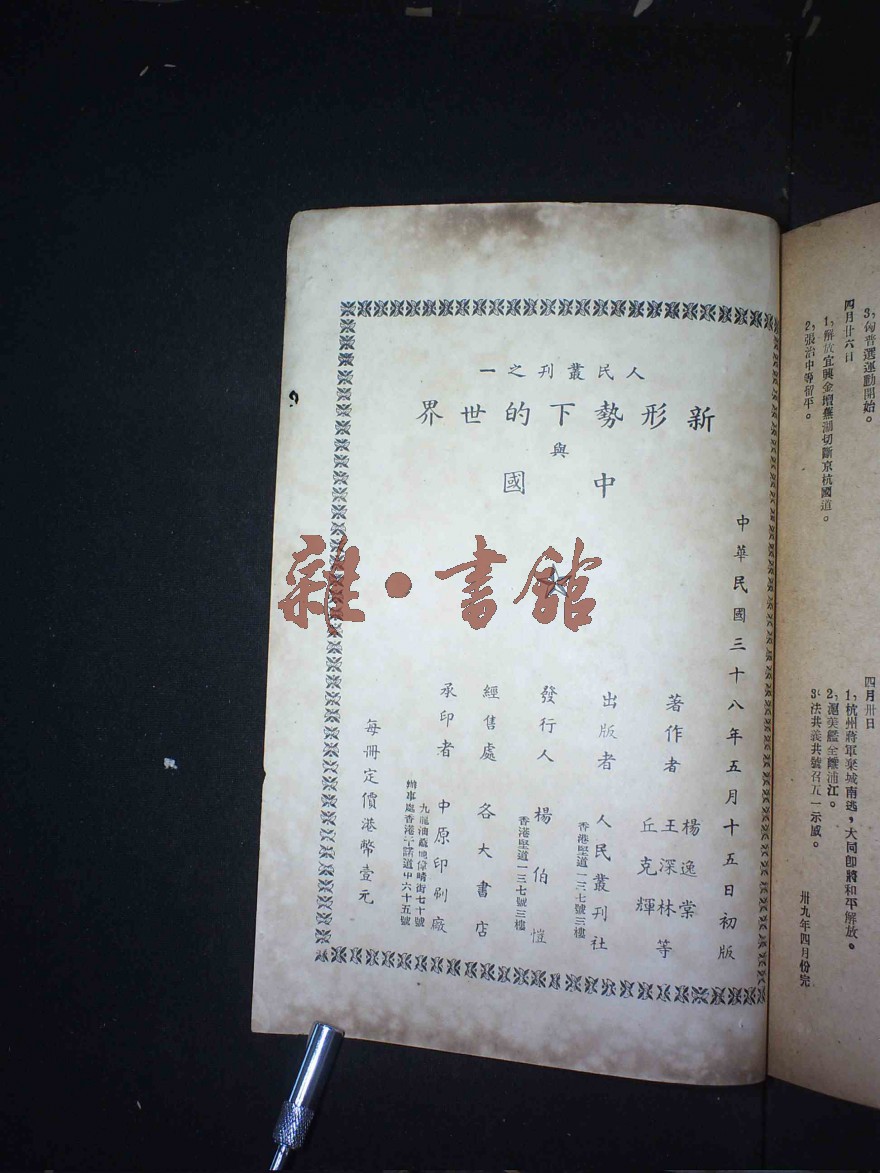 3，匈普選運動開始。
四月廿六日
1，解放宜興金壇蕪湖切斷京杭國道。
2，張治中等留平。
四月卅日
1，杭州蔣軍棄城南逃，大同卽將和平解放。
2，滬美艦全離浦江。
3，法共義共號召五一示威。
卅九年四月份完
人民叢刊之一
新形勢下的世界
與
中國
雜·書館
中華民國三十八年五月十五日初版
著作者 楊逸棠 王深林等 丘克輝
出版者 人民叢刊社
香港堅道一三七號三樓
發行人 楊伯愷
香港堅道一三七號三樓
經售處 各大書店
承印者 中原印刷廠
九龍油蔴地偉晴街七十號
辦事處香港干諾道中六十五號
每冊定價港幣壹元